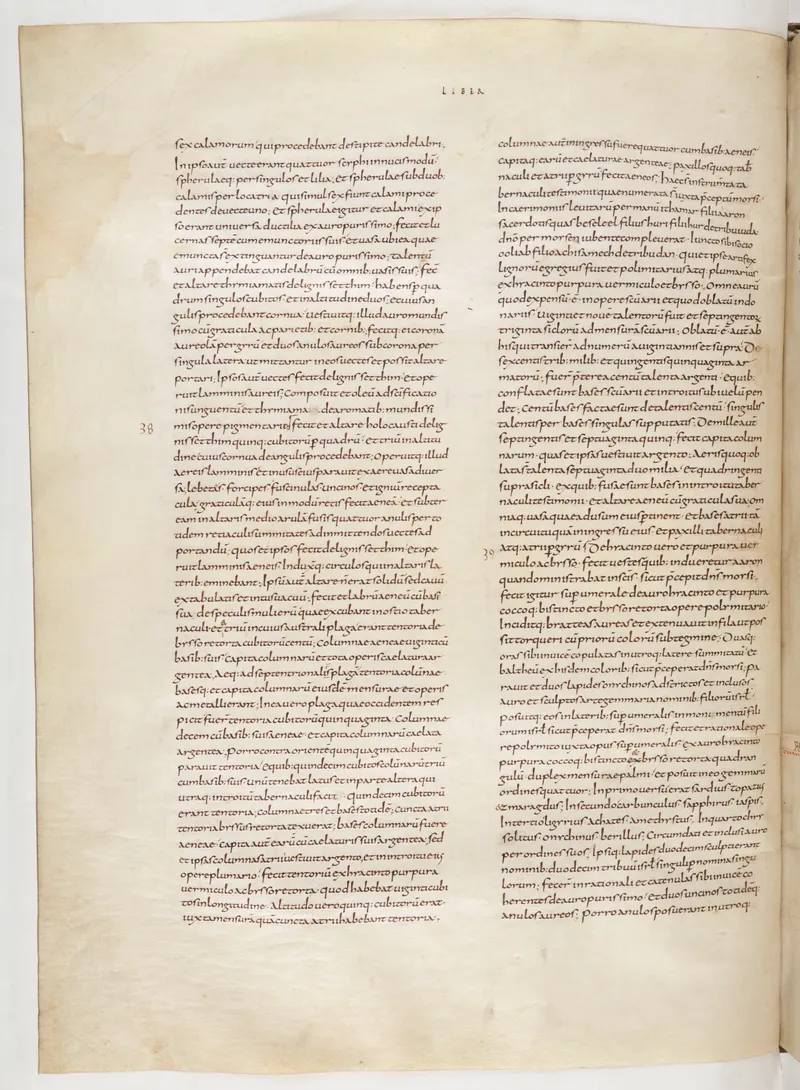 LIBER
sex calamorum qui procedebant de stipite candelabri.
In ipso aut uecte erant quattuor scyphi innucis modū.
spherulaeq; per singulos et lilia; et spherulae sub duob;
calamis per loca tria qui simul sex fiunt calami proce
dentes de uecte uno; et spherulae igitur et calami ex ip
so erant uniuersa ductilia ex auro purissimo; fecit et lu
cernas septē cum emunctoriis suis et uasa ubi ea quae
emuncta sunt extinguantur de auro purissimo; talentū
auri appendebat candelabrū cū omnib; uasis suis; fec
et altare thymiamatis de lignis setthim habens p qua
drum singulos cubitos et in altitudine duos; e cuius an
gulis procedebant cornua; uestiuitq; illud auro mundis
simo cū craticula ac parietib; et cornib; fecitq; ei coronā
aureolā per gyrū et duos anulos aureos sub corona per
singula latera ut mittantur in eos uectes et possit altare
portari; Ipsos aut uectes fecit de lignis setthim et ope
ruit lamminis aureis; Composuit et oleū ad sctificatio
nis unguentū et thymiama de aromatib; mundissi
38
mis opere pigmentarii; fecit et altare holocausti de lig
nis setthim quinq; cubitorū p quadrū et triū in altitu
dine cuius cornua de angulis procedebant; Operuitq; illud
aereis lamminis et in usus eius parauit ex aere uasa diuer
sa; lebetas forcipes fuscinulas uncinos et igniū recepta
cula; craticulāq; eius in modū retis fecit aeneā et subter
eam in altaris medio arulā fusis quattuor anulis per to
adem retiaculi summitates ad inmittendos uectes ad
portandū; quos et ipsos fecit de lignis setthim et ope
ruit lamminis aeneis; Induxq; circulos qui in altaris la
terib; eminebant; Ipsū aut altare n erat solidū sed cauū
ex tabulatis et intus uacuū; fecit et labrū aeneū cū basi
sua de speculis mulierū quae excubant in ostio taber
naculi et atriū in cuius australi plaga erant tentoria de
bysso retorta cubitorū centū; Columnae aeneae uiginti cū
basib; suis; Capita columnarū et tota operis caelatura ar
gentea; Aeq; ad septentrionalis plagā tentoria colūnae
basesq; et capita columnarū eiusdē mensurae et operis
ac metalli erant; In ea uero plaga quae occidentem res
picit fuer tentoria cubitorū quinquaginta. Columnae
decem cū basib; suis aeneae et capita columnarū caelata
argentea; porro contra orientē quinquaginta cubitorū
parauit tentoria; e quib; quindecim cubitos colūnarū triū
cum basib; suis unū tenebat latus et in parte altera qui
utraq; introitū tabernaculi facit. quindecim cubitorū
erant tentoria; columnae tres et bases totidē; cuncta atrii
tentoria byssus retorta texuerat; bases columnarū fuere
aeneae; Capita aut earū cū caelaturis suis argentea; sed
et ipsas columnas atrii uestiuit argento, et in introitu eius
opere plumario fecit tentoriū ex hyacincto purpura
uermiculo ac bysso retorta quod habebat uiginti cubi
tos in longitudine. Altitudo uero quinq; cubitorū erat.
iuxta mensurā quā cuncta atrii habebant tentoria;
columnae aut in ingressu fuere quattuor cum basib; aeneis
capitaq; earū et caelaturae argenteae; paxillos quoq; tab
naculi et atrii p gyrū fecit aeneos; haec s instrumenta ta
bernaculi testimonii quae numerata s iuxta pceptū morsi
In caerimoniis leuitarū per manū ithamar filii aaron
sacerdotis quas beseleel filius huri filii hur de tribu iuda
dno per morsen iubente compleuerat; Iuncto sibi socio
ooliab filio achisamech de tribu dan. qui et ipse artifex
lignorū egregius fuit et polimitarius atq; plumarius
ex hyacincto purpura uermiculo et bysso. Omne aurū
quod expensū ē in opere scuarii et quod oblatū in do
nariis uiginti et noue talentorū fuit et septangentorū
triginta siclorū ad mensurā scuarii; Oblatū ē aut ab
his qui transier ad numerū a uiginti annis et supra; De
sexcentis trib; milib; et quingentis quinquaginta ar
matorū; fuer p terea centū talenta argenti e quib;
conflatae sunt bases scuarii et introitus ubi uelū pen
det; Centū bases factae sunt de talentis centū singulis
talentis per bases singulas supputatis; De mille aut
septangentis et septuaginta quinq; fecit capita colum
narum quas et ipsas uestiuit argento; Aeris quoq; ob
lata s talenta septuaginta duo milia et quadringenti
supra sicli. ex quib; fusae sunt bases in introitu taber
naculi testimonii et altare aeneū cū craticula sua om
niaq; uasa quae ad usum eius pertinent et bases atrii tā
in circuitu quā in ingressu eius et paxilli tabernaculi
39
atq; atrii p gyrū; De hyacincto uero et purpura uer
miculo ac bysso fecit uestes quib; indueretur aaron
quando ministrabat in scis sicut pcepit dns morsi;
fecit igitur superumerale de auro hyacincto et purpura
coccoq; bis tincto et bysso retorta opere polymitario
Inciditq; bratteas aureas et extenuauit in fila ut pos
sit torqueri cū priorū colorū subtegmine; Duasq;
oras sibi inuicē copulatas in utroq; latere summitatū et
baltheū ex hisdem colorib; sicut pceperat dns morsi; pa
rauit et duos lapides onychinos adstrictos et inclusos
auro et sculptos arte gemmaria nominib; filiorū isrl
posuitq; eos in laterib; superumeralis in monimentū fili
orum isrl sicut pceperat dns morsi; fecit et rationale ope
re polymito iuxta opus superumeralis ex auro hyacincto
purpura coccoq; bis tincto et bysso retorta quadran
gulū duplex mensurae palmi et posuit in eo gemmarū
ordines quattuor; In primo uersu erat sardius topazius
& zmaragdus; In secundo carbunculus sapphirus iaspis
In tertio ligyrius achates amethystus. In quarto chry
solitus onychinus berillus; Circumdati et inclusi auro
per ordines suos; Ipsiq; lapides duodecim sculpti erant
nominib; duodecim tribuū isrl singuli nominib singu
lorum; fecer in rationali et catenulas sibi inuicē co
herentes de auro purissimo et duos uncinos totideq;
anulos aureos; porro anulos posuerunt in utroq;